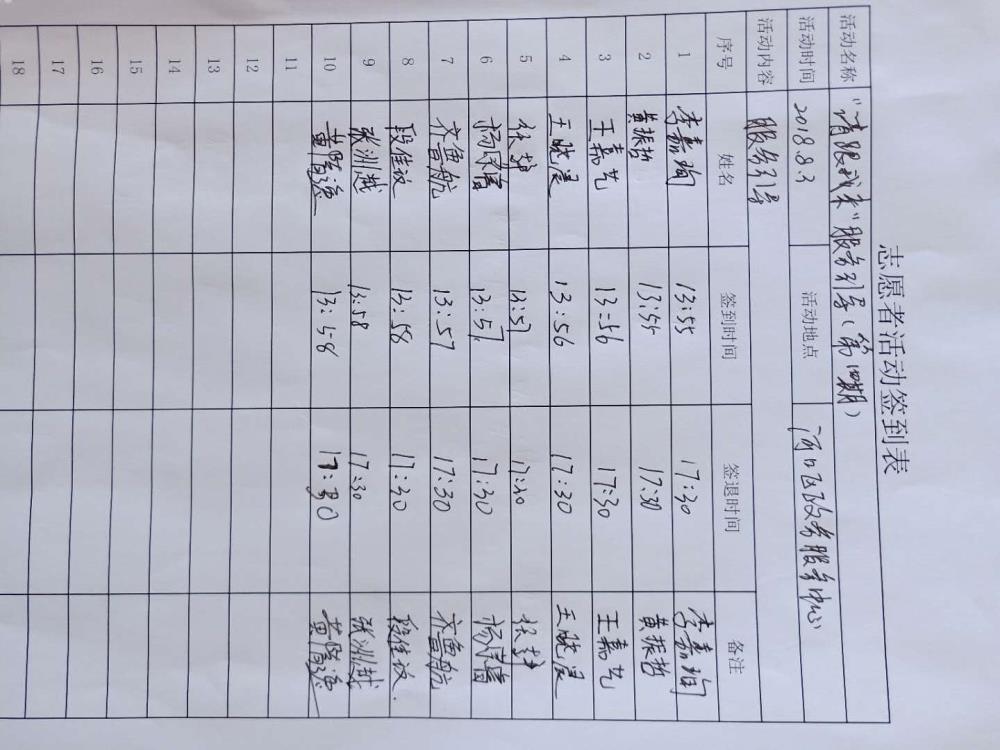 志愿者活动签到表
活动名称 "请跟我来"服务引导(第四期)
活动时间 2018.8.3 活动地点 河口区政务服务中心
活动内容 服务引导
序号 姓名 签到时间 签退时间 备注
1 李嘉珣 13:55 17:30 李嘉珣
2 黄振哲 13:55 17:30 黄振哲
3 王嘉艺 13:56 17:30 王嘉艺
4 王晓昊 13:56 17:30 王晓昊
5 13:57 17:30
6 13:57 17:30
7 齐鲁航 13:57 17:30 齐鲁航
8 段佳汶 13:58 17:30 段佳汶
9 张洲越 13:58 17:30 张洲越
10 13:58 17:30
11
12
13
14
15
16
17
18